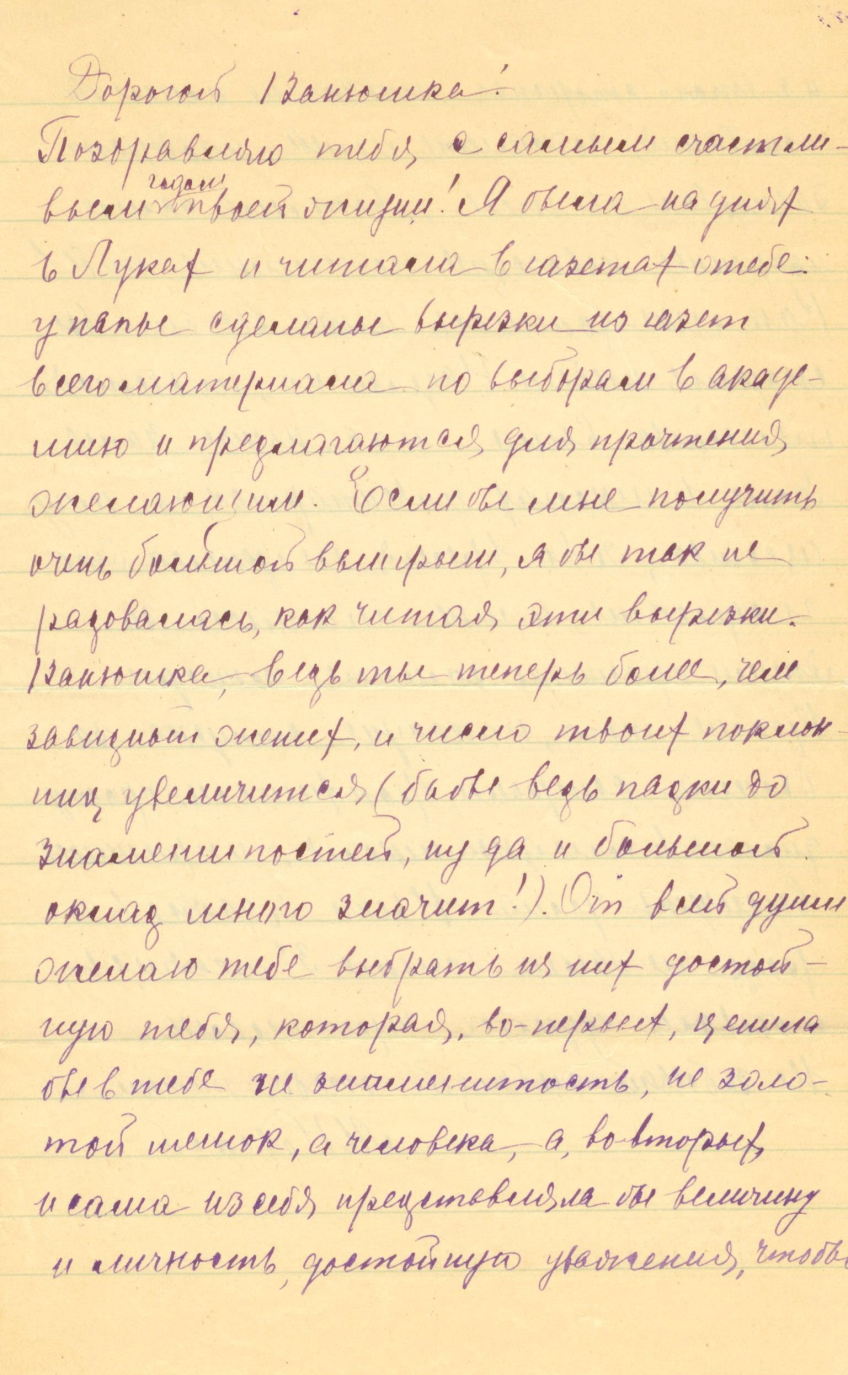 Дорогой Ванюшка!
Поздравляю тебя с самым счастли-
вым годом твоей жизни! Я была на днях
в Луках и читала в газетах о тебе:
у папы сделаны вырезки из газет
всего материала по выборам в акаде-
мию и предлагаются для прочтения
желающим. Если бы мне получить
очень большой выигрыш, я бы так не
радовалась, как читая эти вырезки.
Ванюшка, ведь ты теперь более, чем
завидный жених, и число твоих поклон-
ниц увеличится (бабы ведь падки до
знаменитостей, ну да и большой
оклад много значит!). От всей души
желаю тебе выбрать из них достой-
ную тебя, которая, во-первых, ценила
бы в тебе не знаменитость, не золо-
той мешок, а человека, а, во вторых,
и сама из себя представляла бы величину
и личность, достойную уважения, чтобы